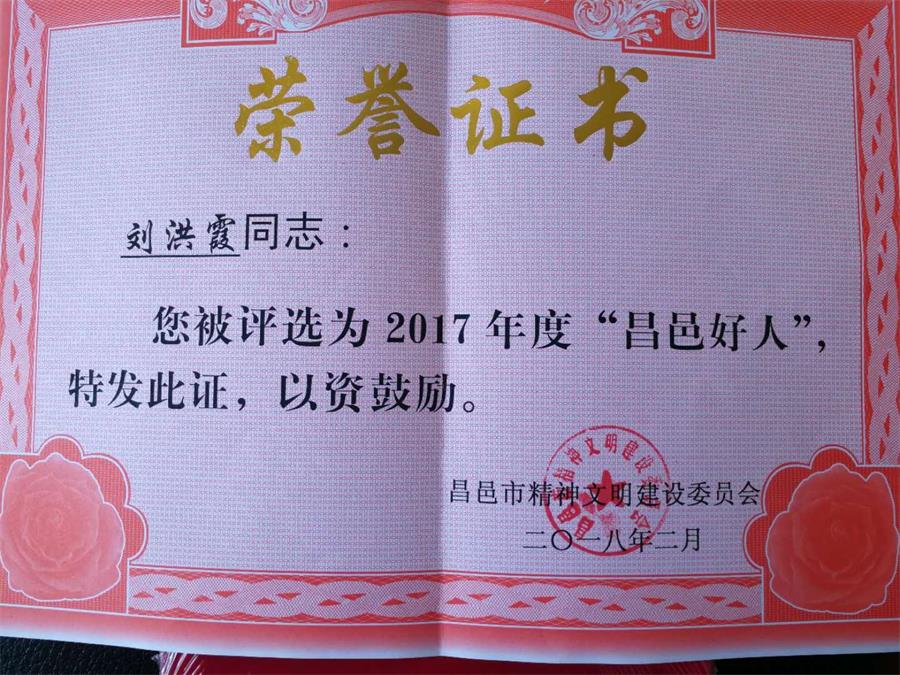 荣誉证书
刘洪霞同志：
您被评选为2017年度“昌邑好人”，
特发此证，以资鼓励。
昌邑市精神文明建设委员会
二〇一八年二月